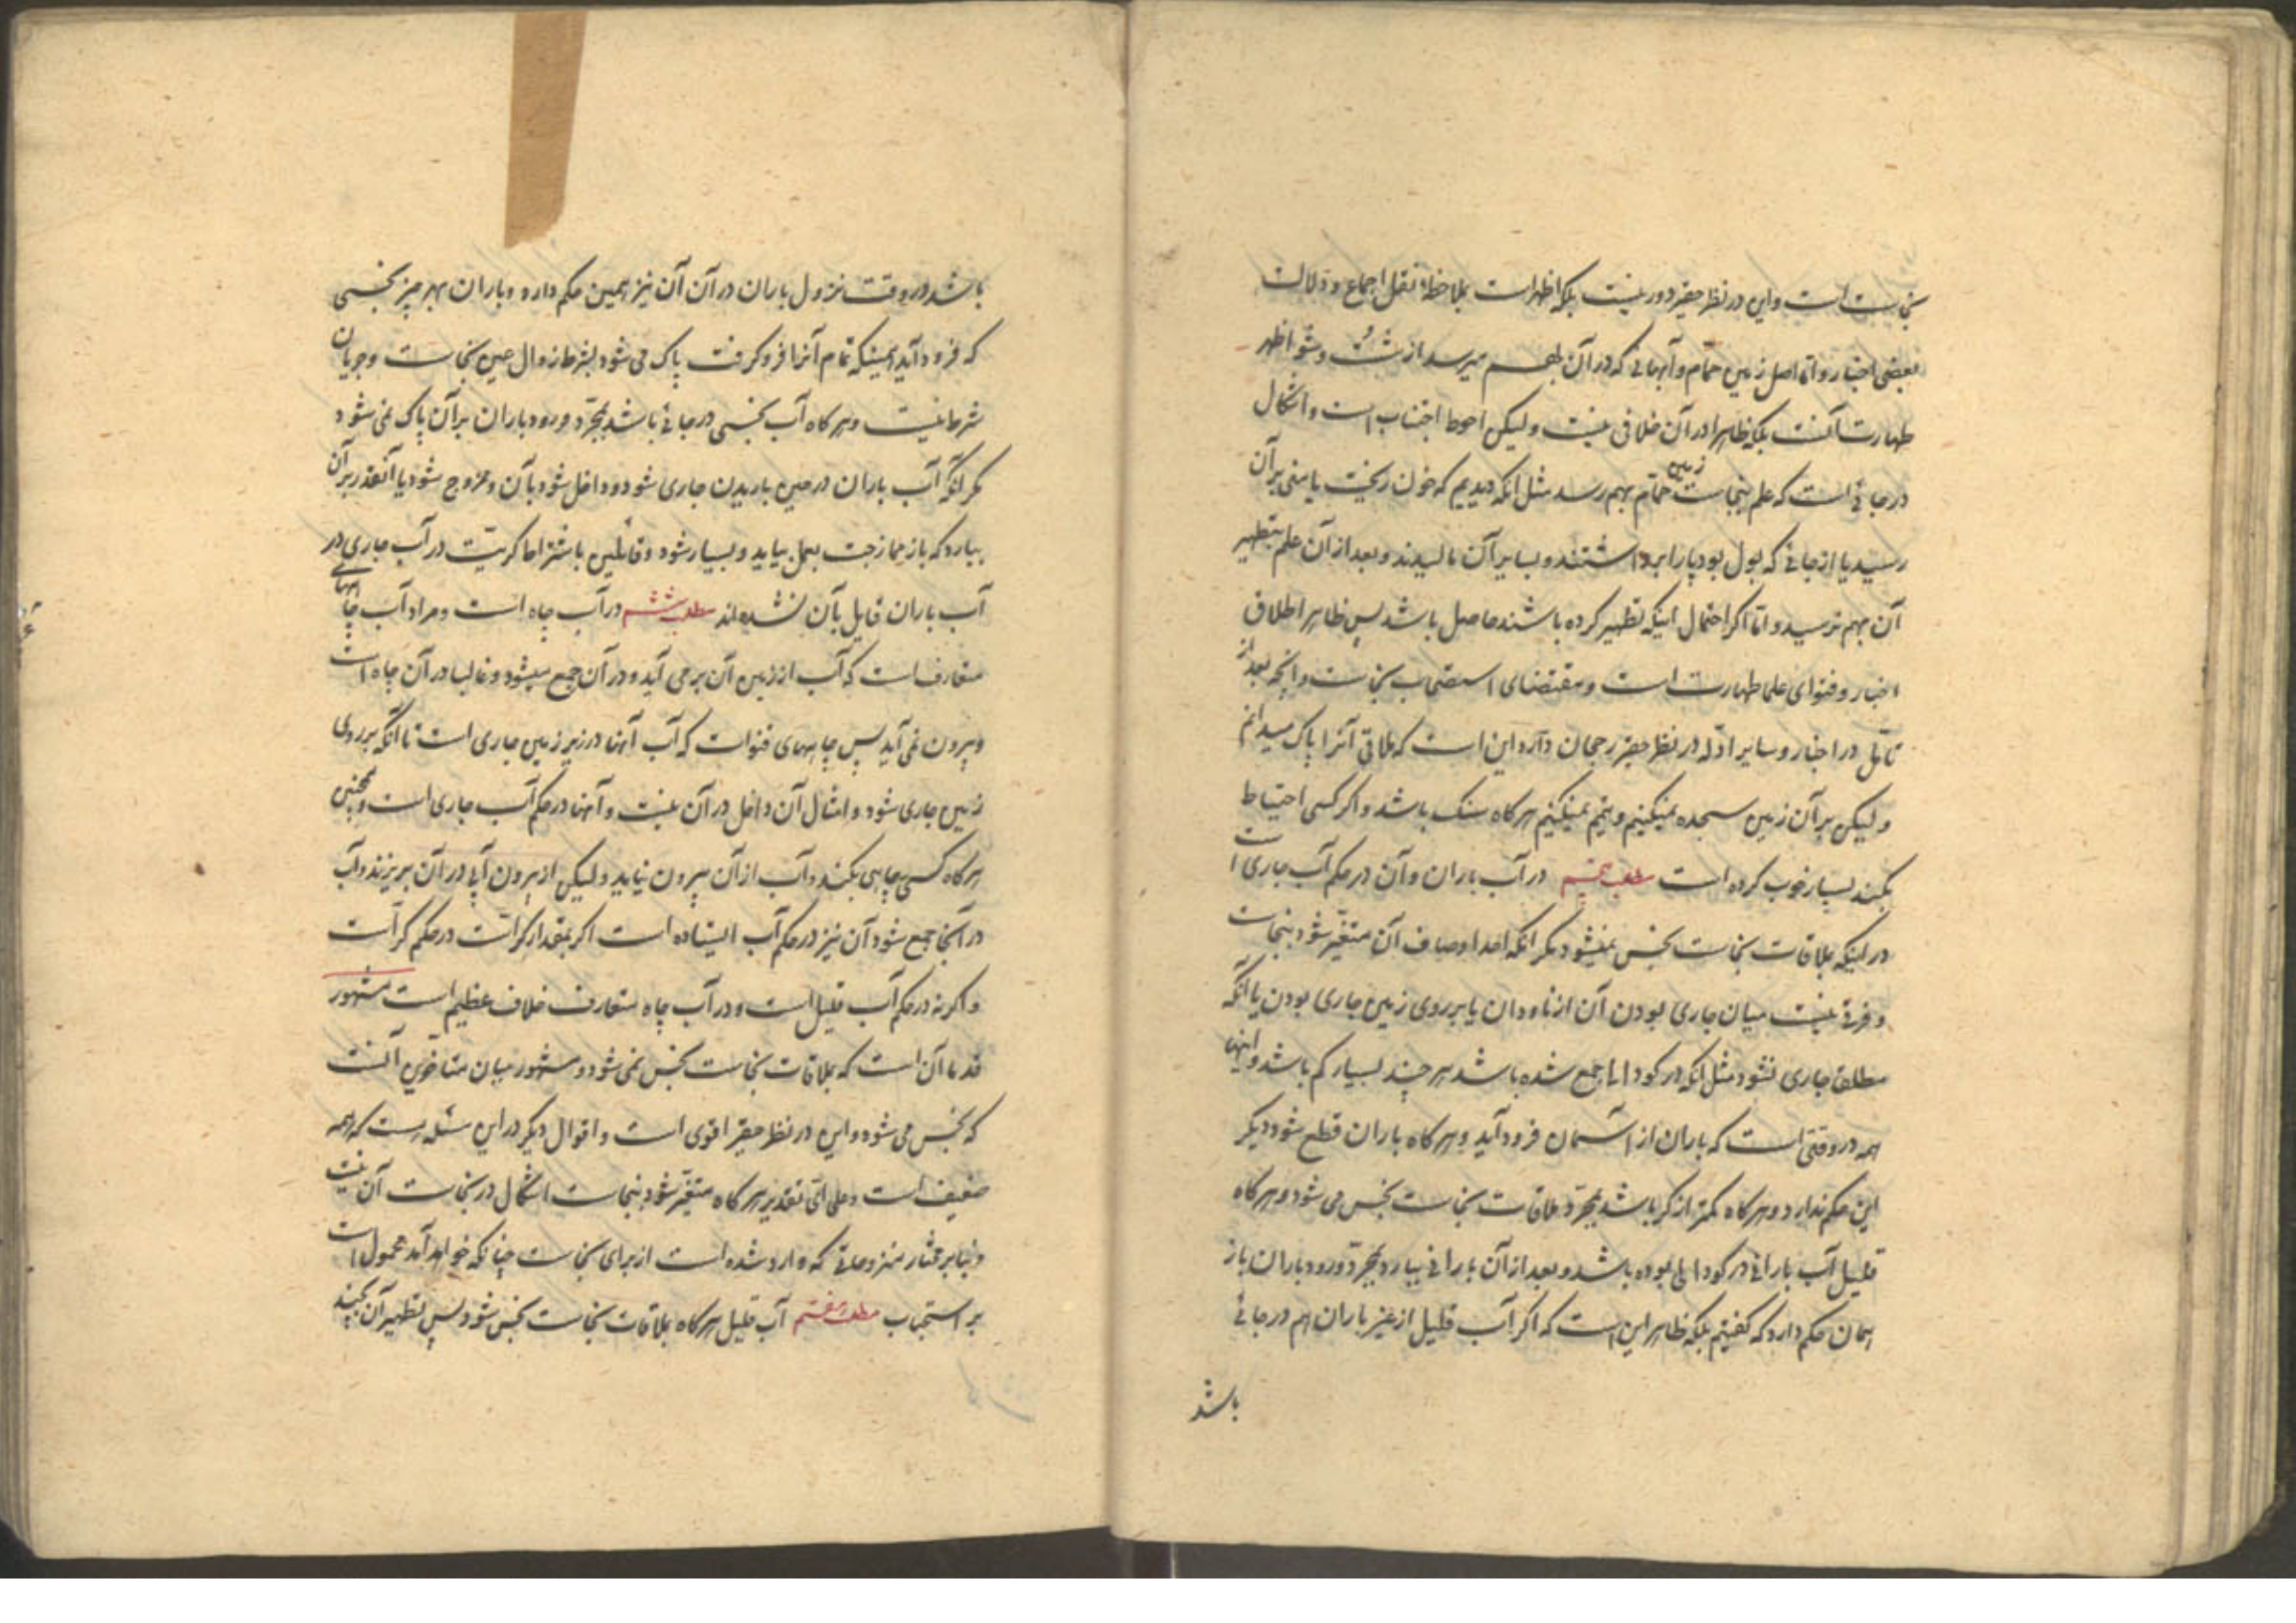 نجاست است و این در نظر حقیر دور نیست بلکه اظهر است بملاحظه نقل اجماع و دلالت
بعضی اخبار و اما اصل زمین حمام و آبهائی که در آن بهم میرسد از شست و شو اظهر
طهارت آنست بلکه ظاهرا در آن خلافی نیست و لیکن احوط اجتناب است و اشکال
در جائی است که علم بنجاست زمین حمام بهم رسد مثل آنکه دیدیم که خون ریخت یا منی بر آن
رسید یا از جائی که بول بود پا را برداشتند و بسایر آن مالیدند و بعد از آن علم بتطهیر
آن بهم نرسید و اما اگر احتمال اینکه تطهیر کرده باشند حاصل باشد پس ظاهر اطلاق
اخبار و فتوای علما طهارت است و مقتضای استصحاب نجاست و آنچه بعد از
تأمل در اخبار و سایر ادله در نظر حقیر رجحان دارد این است که ملاقی آنرا پاک میدانم
و لیکن بر آن زمین سجده نمیکنیم و تیمم نمیکنیم هرگاه سنک باشد و اگر کسی احتیاط
بکند بسیار خوب کرده است مطلب پنجم در آب باران و آن در حکم آب جاری است
در اینکه بملاقات نجاست نجس نمیشود مگر آنکه احد اوصاف آن متغیر شود بنجاست
و فرقی نیست میان جاری بودن آن از ناودان یا بر روی زمین جاری بودن یا آنکه
مطلقا جاری نشود مثل آنکه در کودالی جمع شده باشد هر چند بسیار کم باشد و اینها
همه در وقتی است که باران از آسمان فرود آید و هرگاه باران قطع شود دیگر
این حکم ندارد و هرگاه کمتر از کر باشد بمجرد ملاقات نجاست نجس می شود و هرگاه
قلیل آب بارانی در کودالی بوده باشد و بعد از آن بارانی ببارد بمجرد ورود باران باز
همان حکم دارد که گفتیم بلکه ظاهر این است که اگر آب قلیل از غیر باران هم در جائی
باشد
باشد در وقت نزول باران در آن آن نیز همین حکم دارد و باران بهر چیز نجسی
که فرود آید همینکه تمام آنرا فرو کرفت پاک می شود بشرط زوال عین نجاست و جریان
شرط نیست و هرگاه آب نجسی در جائی باشد بمجرد ورود باران بر آن پاک نمی شود
مگر آنکه آب باران در حین باریدن جاری شود و داخل شود بآن و ممزوج شود یا آنقدر بر آن
ببارد که باز ممازجت بعمل بیاید و بسیار شود و قائلین باشتراط کریّت در آب جاری در
آب باران قایل بآن نشده اند مطلب ششم در آب چاه است و مراد آب چاههای
متعارفست که آب از زمین آن بر می آید و در آن جمع میشود و غالبا در آن چاه است
و بیرون نمی آید پس چاههای قنوات که آب آنها در زیر زمین جاری است تا آنکه بر روی
زمین جاری شود و امثال آن داخل در آن نیست و آنها در حکم آب جاری است و همچنین
هرگاه کسی چاهی بکند و آب از آن بیرون نیاید و لیکن از بیرون آبی در آن بریزند و آب
در آنجا جمع شود آن نیز در حکم آب ایستاده است اگر بمقدار کر است در حکم کر است
و اگر نه در حکم آب قلیل است و در آب چاه متعارف خلاف عظیم است مشهور
قدما آن است که بملاقات نجاست نجس نمی شود و مشهور میان متأخرین آنست
که نجس می شود و این در نظر حقیر اقوی است و اقوال دیگر در این مسئله هست که همه
ضعیف است و علی ای تقدیر هرگاه متغیر شود بنجاست اشکال در نجاست آن نیست
و بنا بر مختار منزوحاتی که وارد شده است از برای نجاست چنانکه خواهد آمد محمول است
بر استحباب مطلب هفتم آب قلیل هرگاه بملاقات نجاست نجس شود پس تطهیر آن بکنید